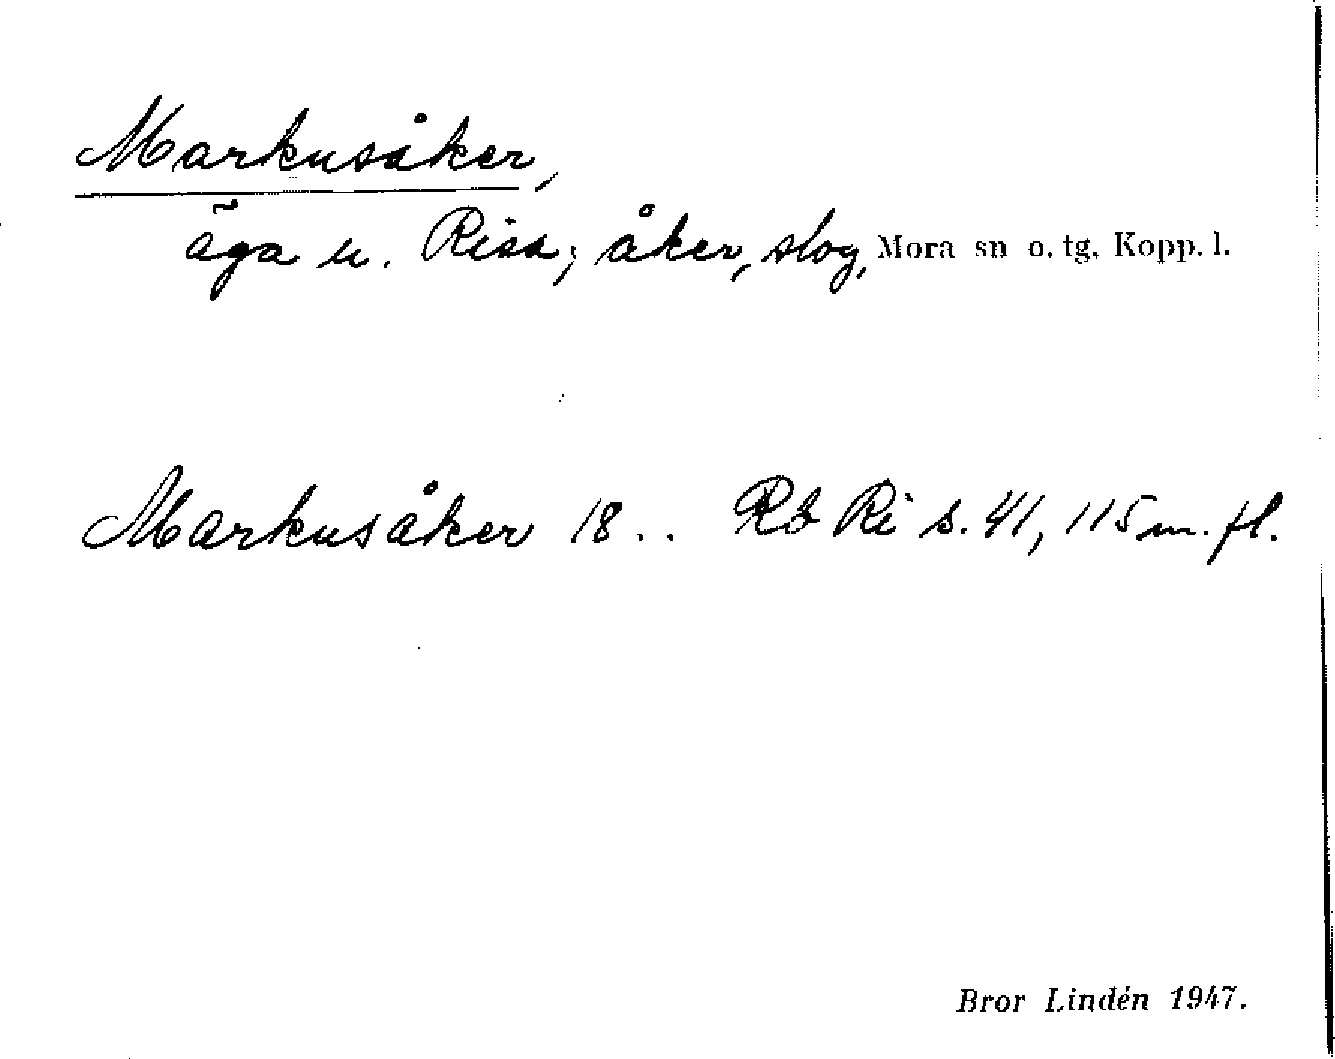 Markusåker,
äga u. Risa; åker, slog, Mora sn o. tg. Kopp. l.
Markusåker 18.. Rb Ri s. 41, 115 m. fl.
Bror Lindén 1947.